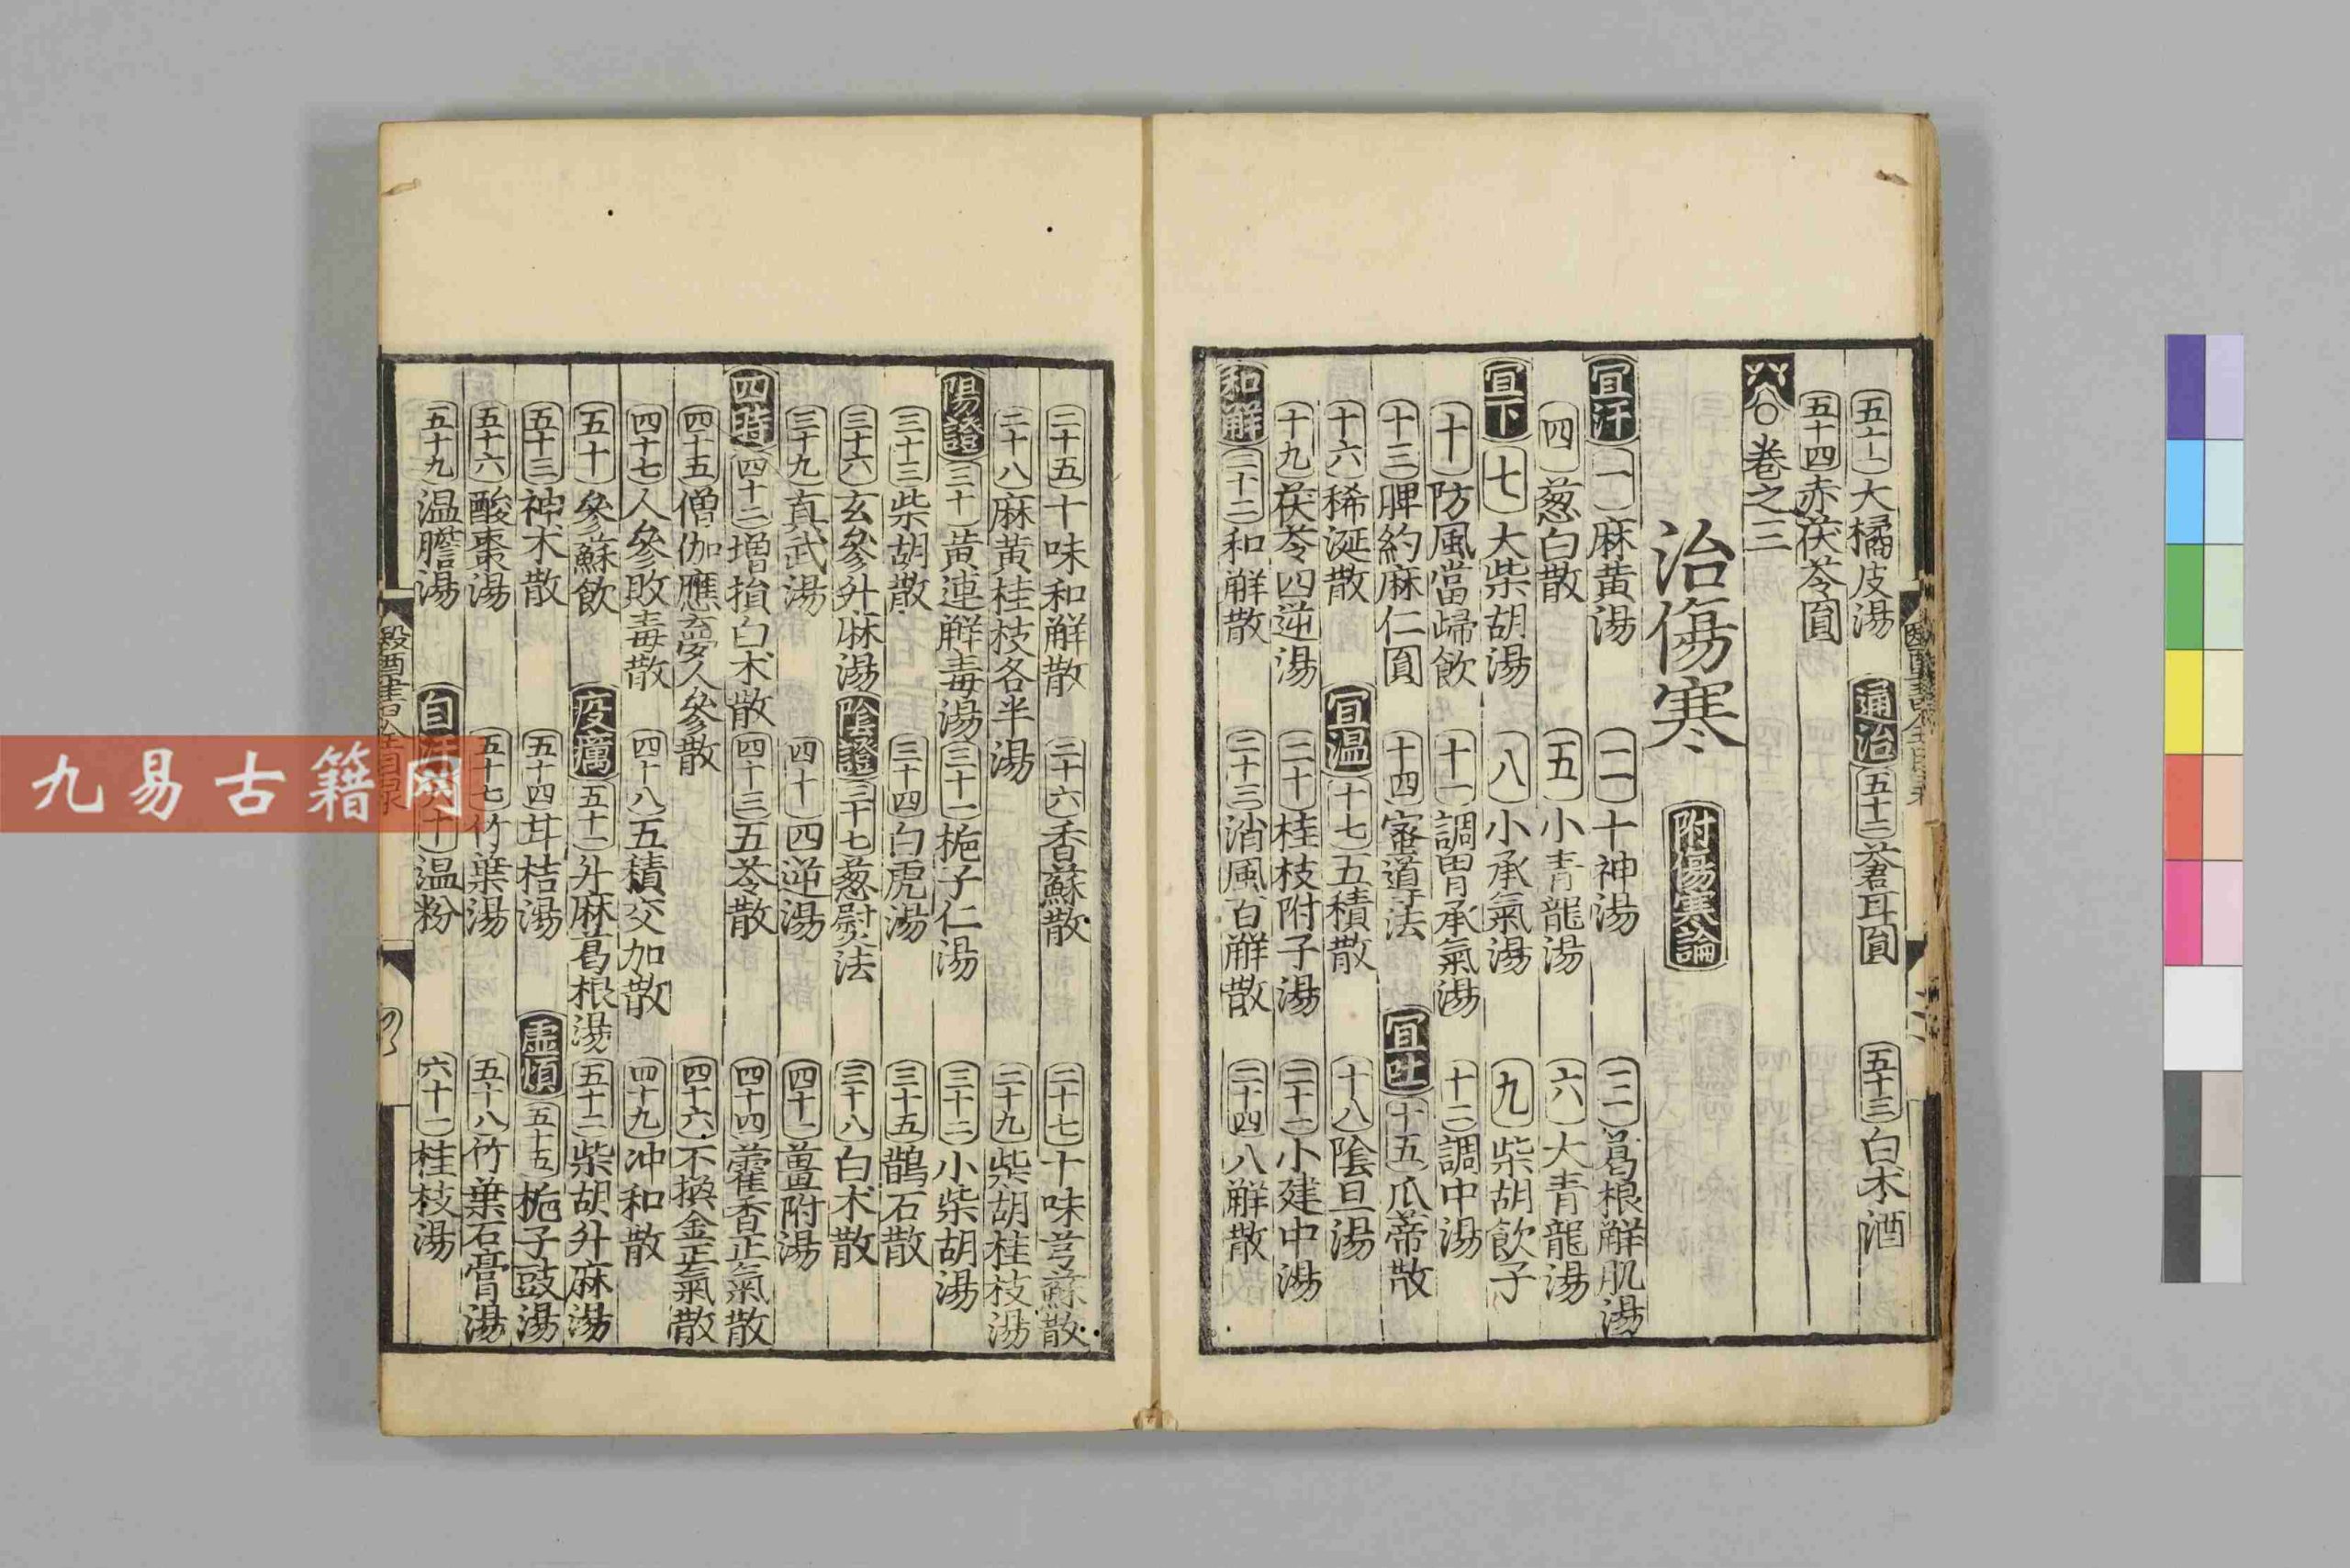 五十一大橘皮湯 通治 五十二蒼耳圓 五十三白术酒
五十四赤茯苓圓
卷之三
治傷寒 附傷寒論
宜汗 一麻黃湯 二十神湯 三葛根解肌湯
四葱白散 五小青龍湯 六大青龍湯
宜下 七大柴胡湯 八小承氣湯 九柴胡飲子
十防風當歸飲 十一調胃承氣湯 十二調中湯
十三脾約麻仁圓 十四蜜導法 宜吐 十五瓜蒂散
十六稀涎散 宜温 十七五積散 十八陰旦湯
十九茯苓四逆湯 二十桂枝附子湯 二十一小建中湯
和解 二十二和解散 二十三消風百解散 二十四八解散
二十五十味和解散 二十六香蘇散 二十七十味芎蘇散
二十八麻黃桂枝各半湯 二十九柴胡桂枝湯
陽證 三十黃連解毒湯 三十一梔子仁湯 三十二小柴胡湯
三十三柴胡散 三十四白虎湯 三十五鵲石散
三十六玄參升麻湯 陰證 三十七葱熨法 三十八白术散
三十九真武湯 四十四逆湯 四十一薑附湯
四時 四十二增損白术散 四十三五苓散 四十四藿香正氣散
四十五僧伽應夢人參散 四十六不換金正氣散
四十七人參敗毒散 四十八五積交加散 四十九冲和散
五十參蘇飲 疫癘 五十一升麻葛根湯 五十二柴胡升麻湯
五十三神术散 五十四甘桔湯 虛煩 五十五梔子豉湯
五十六酸棗湯 五十七竹葉湯 五十八竹葉石膏湯
五十九温膽湯 自汗 六十温粉 六十一桂枝湯
九易古籍网